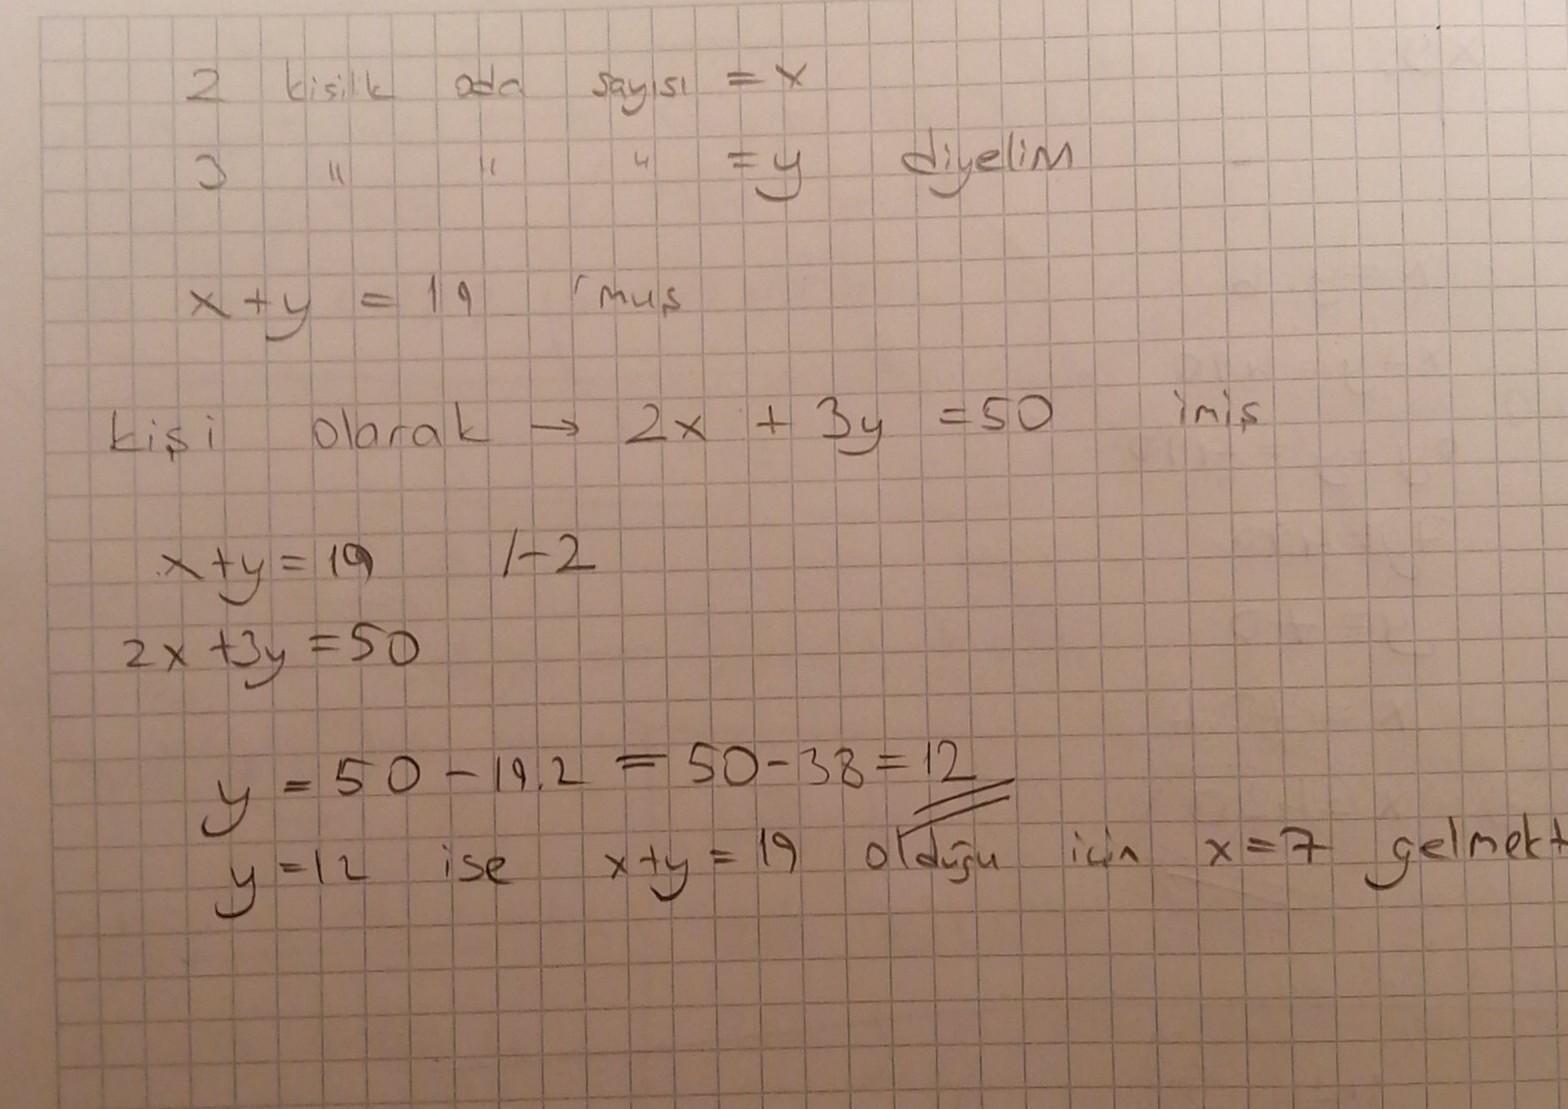 2 kişilk oda sayısı = x
3 " " " = y diyelim
x + y = 19 'muş
kişi olarak → 2x + 3y = 50 imiş
x + y = 19 /-2
2x + 3y = 50
y = 50 - 19.2 = 50 - 38 = 12
y = 12 ise x + y = 19 olduğu için x = 7 gelmekt